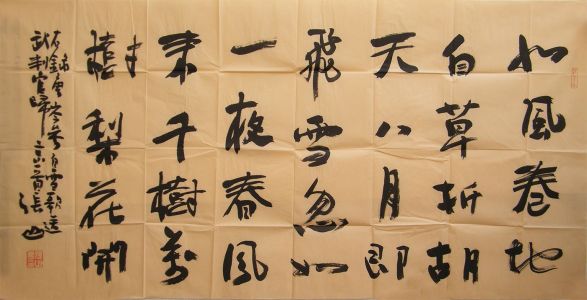 北風卷地
白草折胡
天八月即
飛雪忽如
一夜春風
來千樹萬
樹梨花開
錄唐岑參白雪歌送
武判官歸